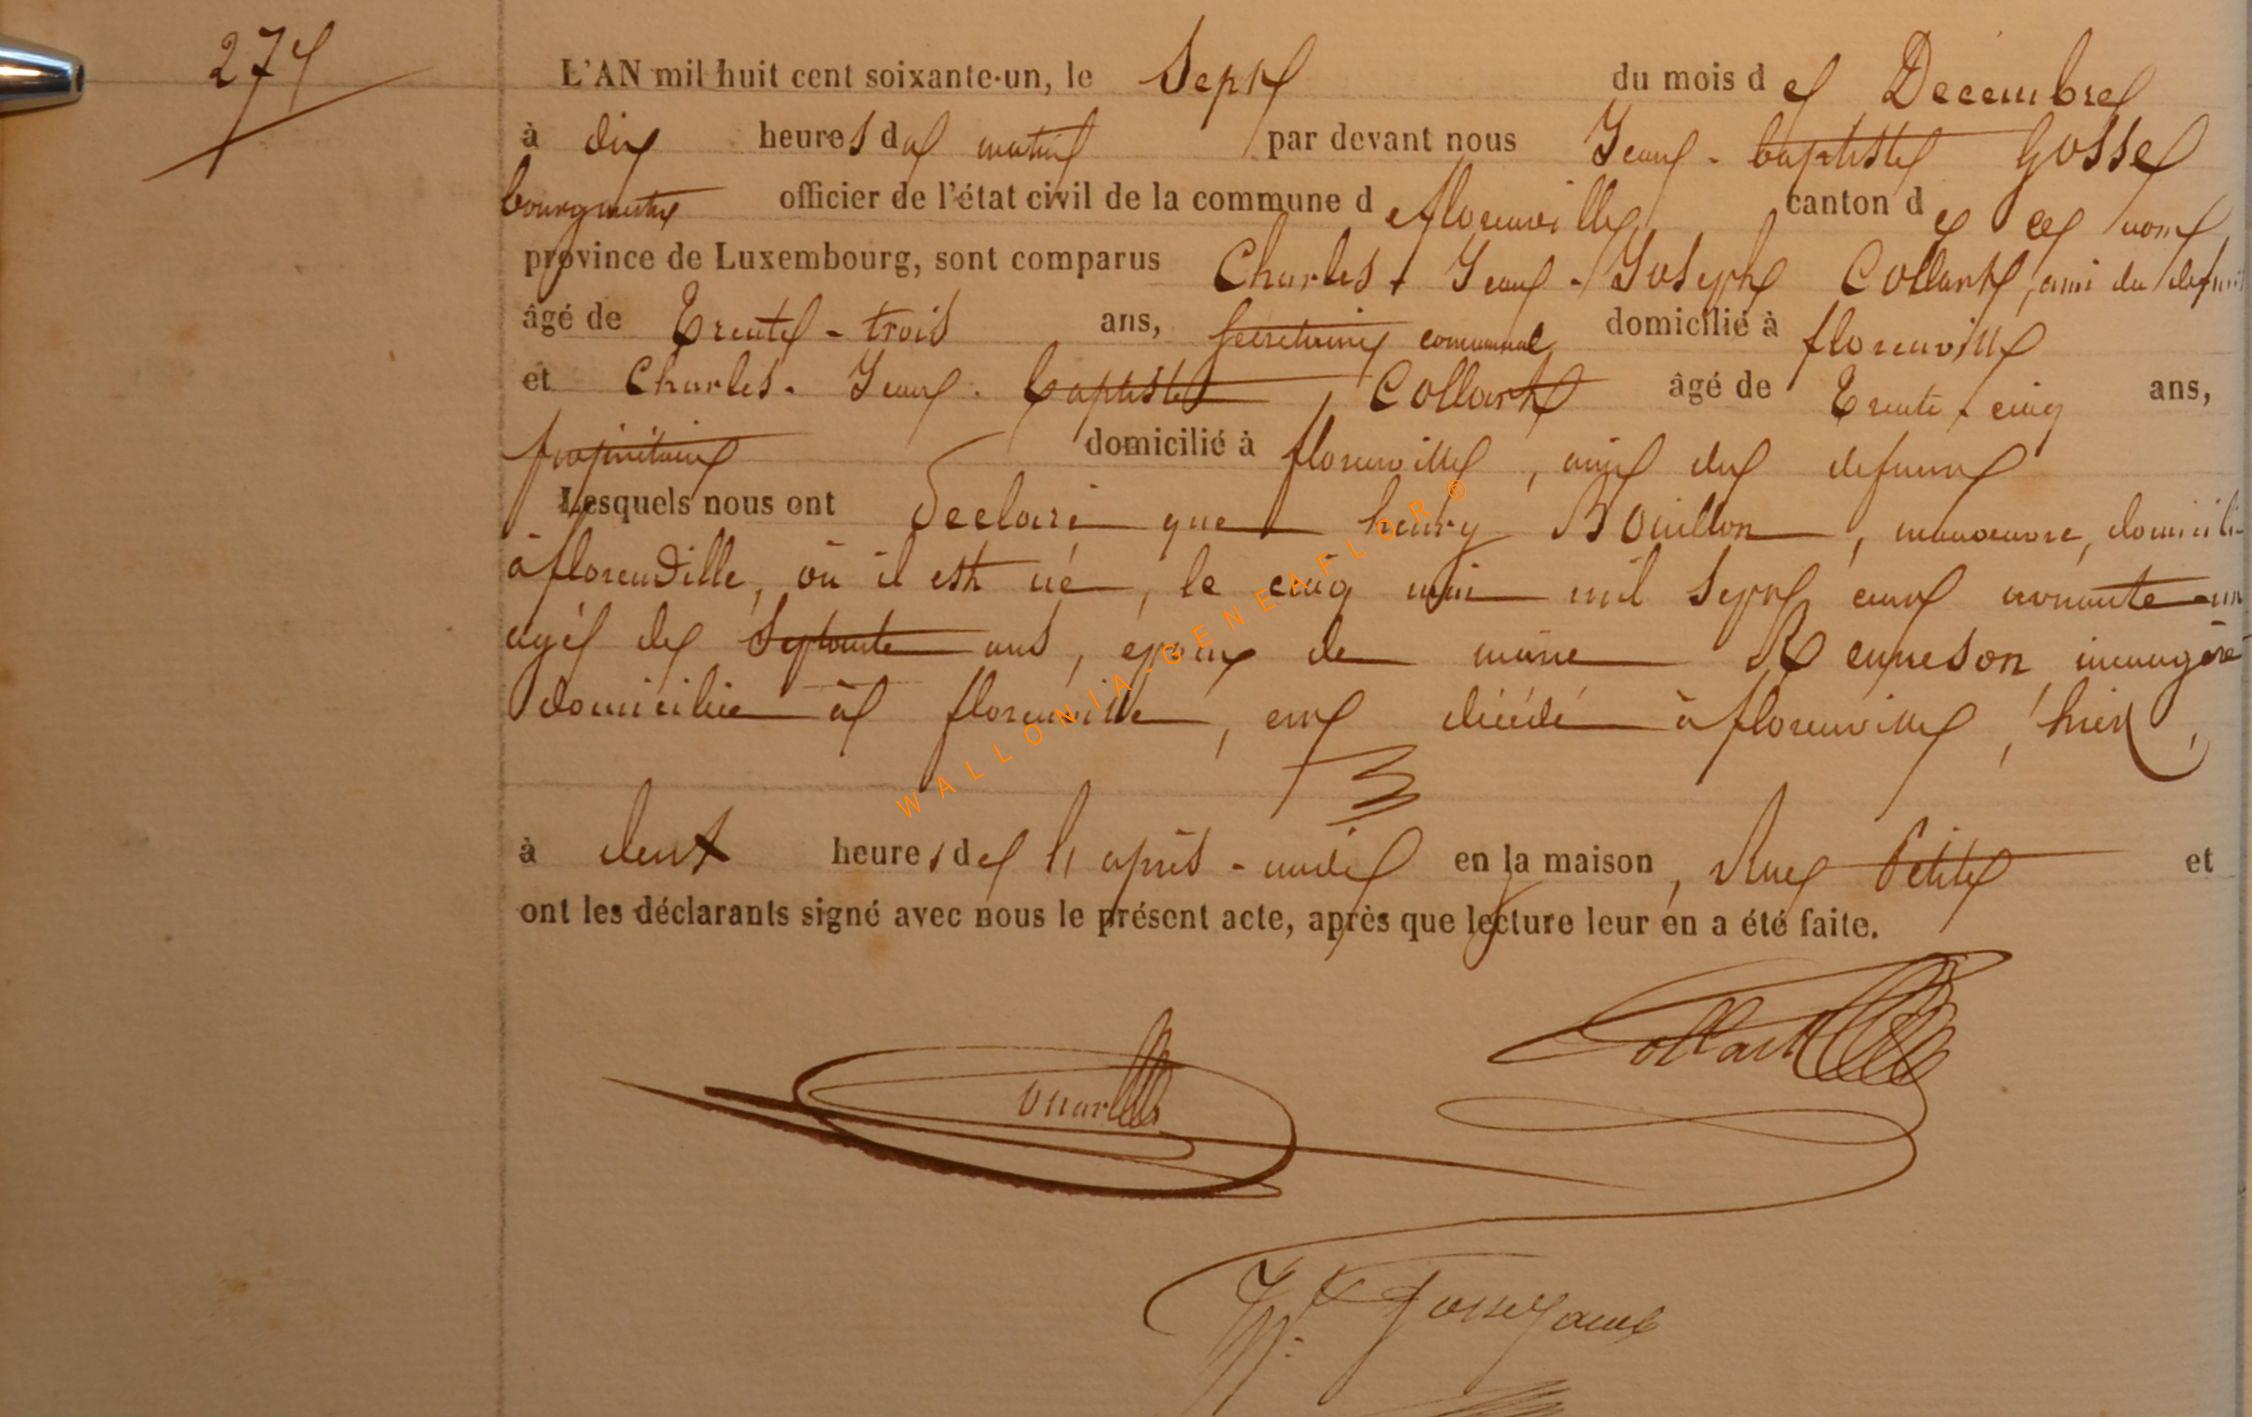 274
L'AN mil huit cent soixante-un, le Sept du mois de Décembre
à dix heures du matin par devant nous Jean-baptiste Gosse
bourgmestre officier de l'état civil de la commune de florenville canton de ce nom,
province de Luxembourg, sont comparus Charles-Jean-Joseph Collart, ami du defunt
âgé de Trente-trois ans, Secrétaire communal domicilié à florenville
et Charles-Jean-baptiste Collart âgé de Trente-cinq ans,
propriétaire domicilié à florenville, ami du defunt
Lesquels nous ont declaré que henry Bouillon, manoeuvre, domicilié
à florenville, où il est né, le cinq mai mil sept cent nonante-un
agé de Septante ans, époux de marie Renneson ménagère
domiciliée à florenville, est décédé à florenville, hier,
à deux heures de l'après-midi en la maison, Rue Petite et
ont les déclarants signé avec nous le présent acte, après que lecture leur en a été faite.
Collart
WALLONIA-GENEAFLOR ®